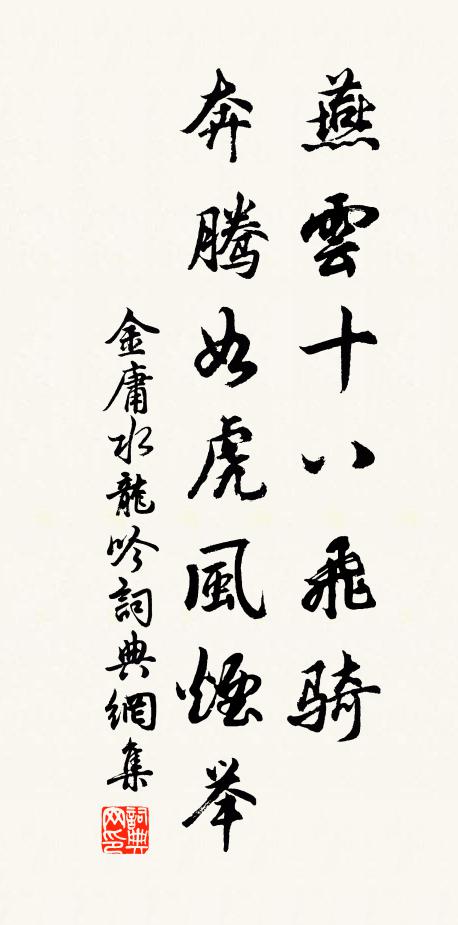 燕雲十八飛騎
奔騰如虎風煙举
金庸水龍吟詞典網集
詞典网印